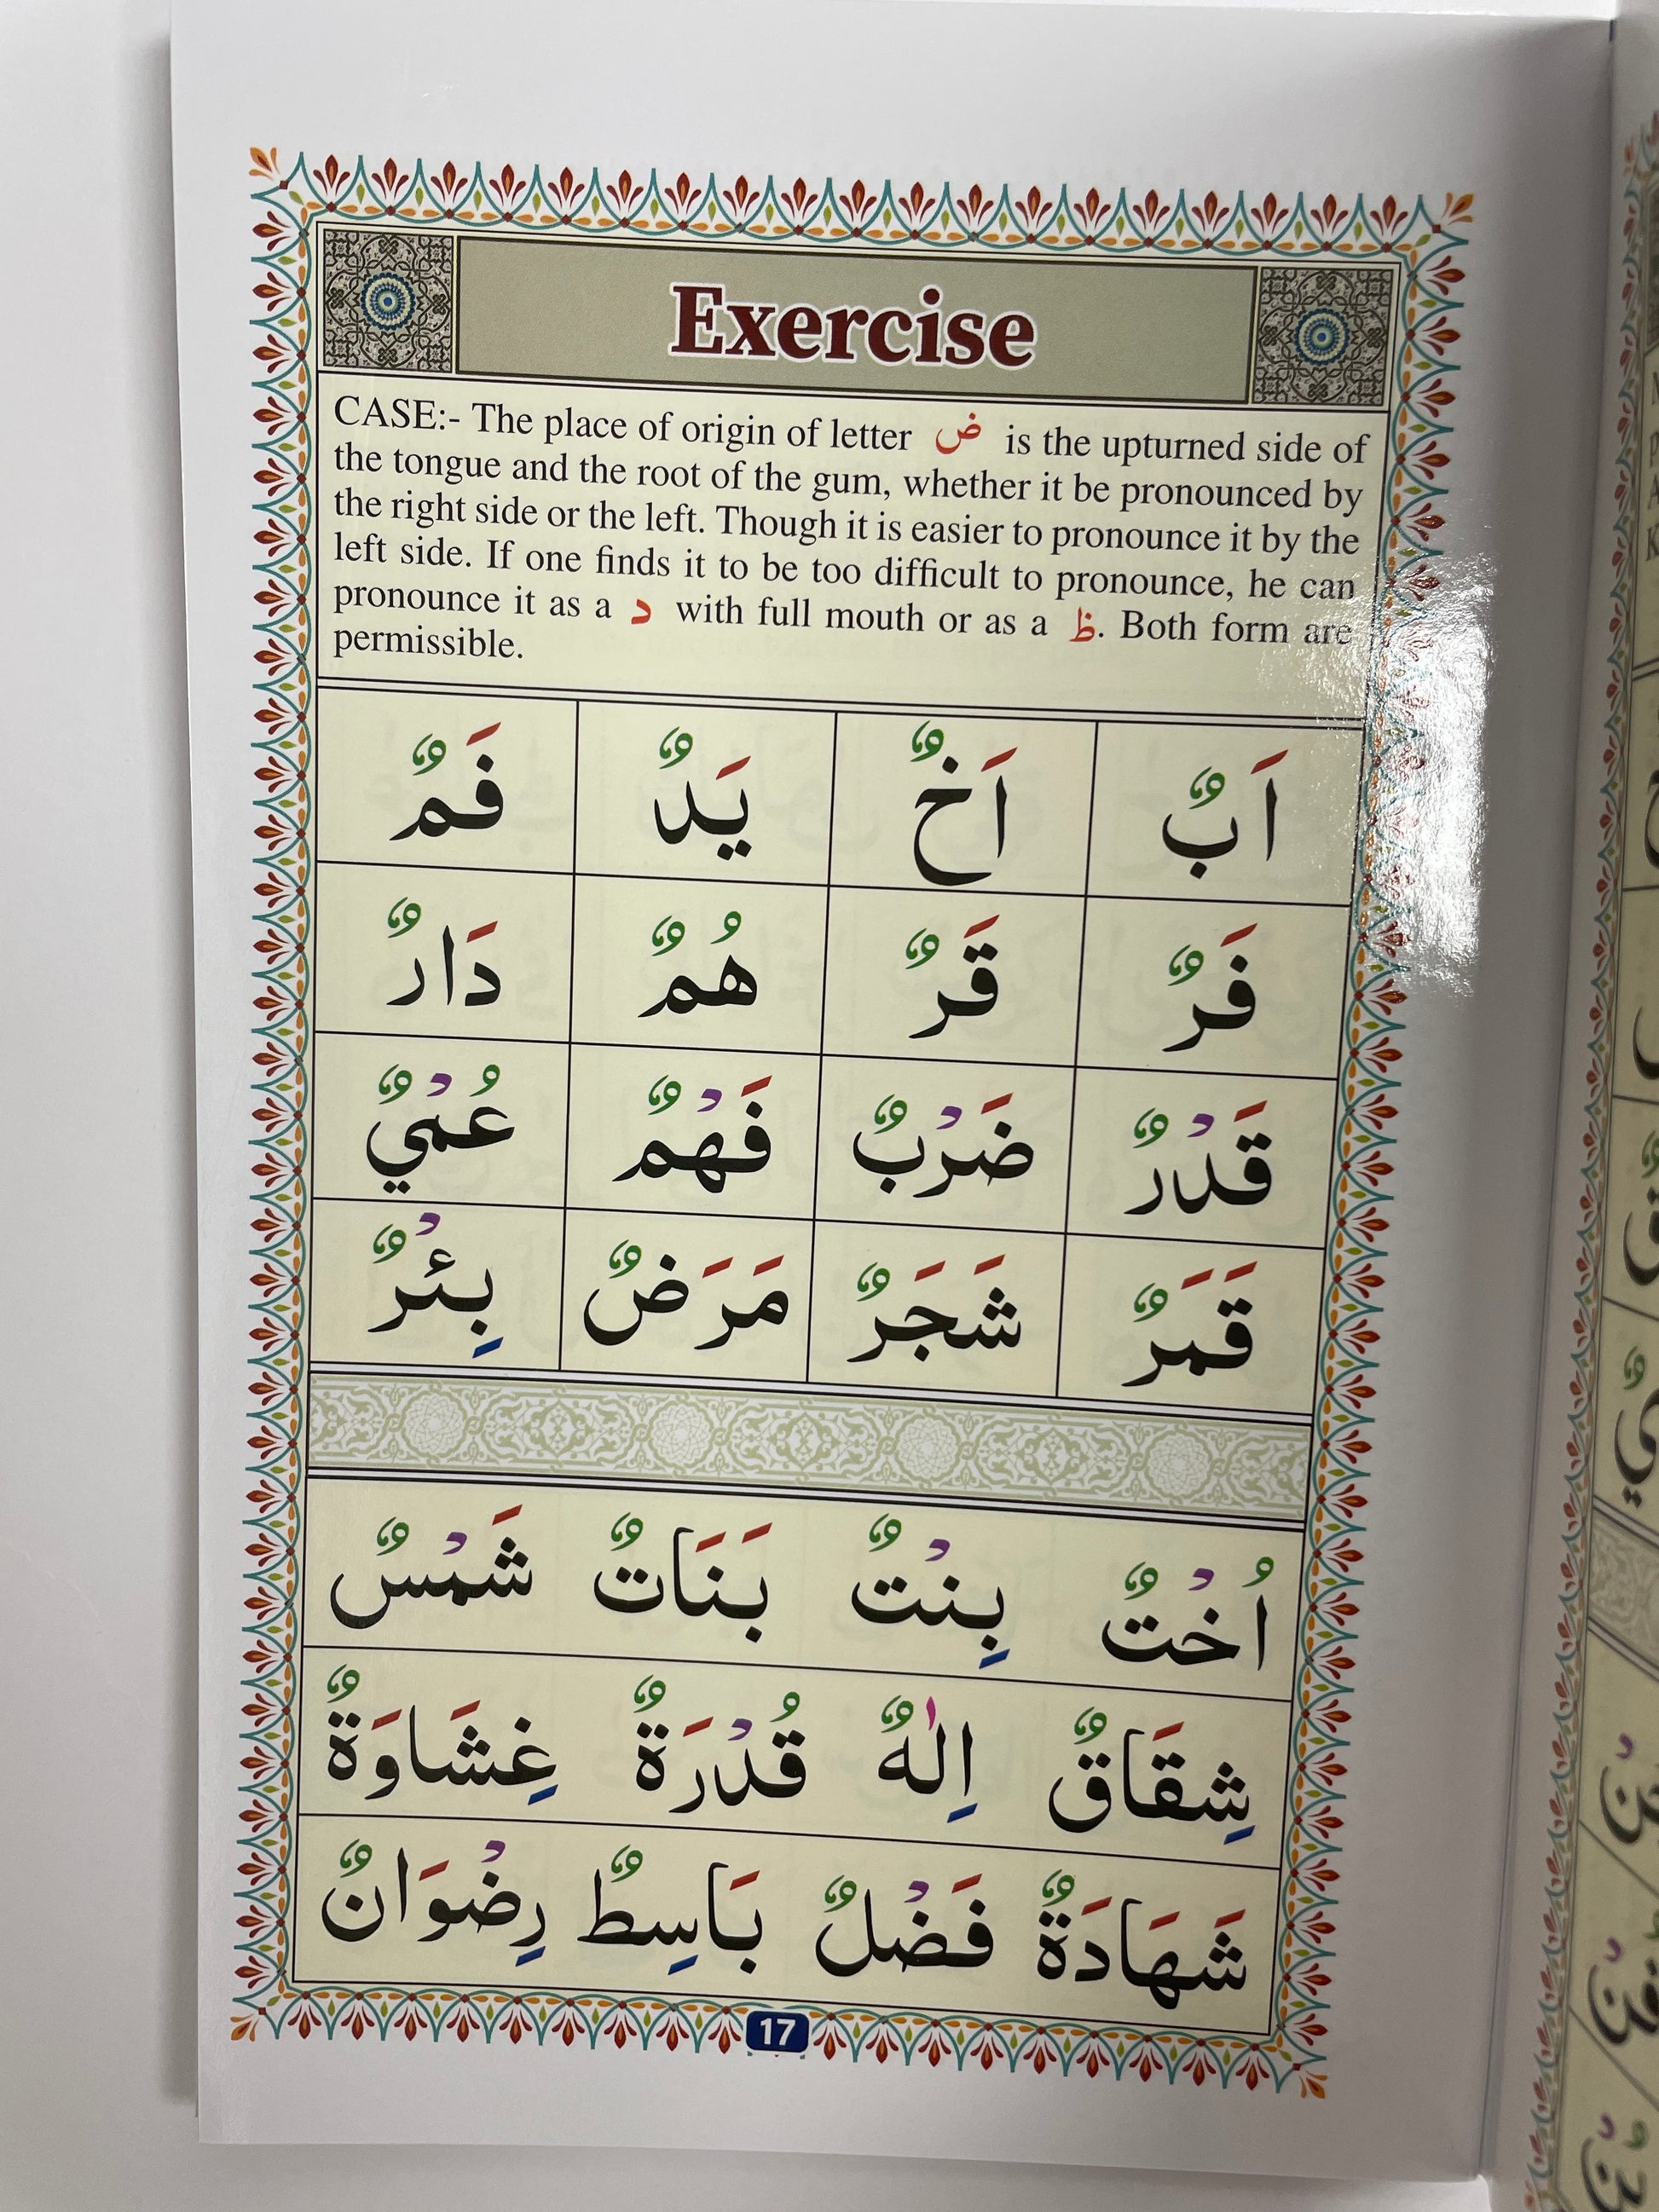 Exercise
CASE:- The place of origin of letter ض is the upturned side of
the tongue and the root of the gum, whether it be pronounced by
the right side or the left. Though it is easier to pronounce it by the
left side. If one finds it to be too difficult to pronounce, he can
pronounce it as a د with full mouth or as a ظ. Both form are
permissible.
اَبٌ اَخٌ يَدٌ فَمٌ
فَرٌ قَرٌ هُمٌ دَارٌ
قَدْرٌ ضَرْبٌ فَهْمٌ عُمْيٌ
قَمَرٌ شَجَرٌ مَرَضٌ بِئْرٌ
اُخْتٌ بِنْتٌ بَنَاتٌ شَمْسٌ
شِقَاقٌ اِلٰهٌ قُدْرَةٌ غِشَاوَةٌ
شَهَادَةٌ فَضْلٌ بَاسِطٌ رِضْوَانٌ
17